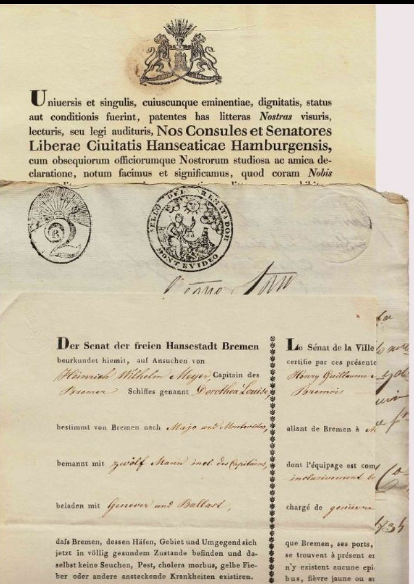 Uniuersis et singulis, cuiuscunque eminentiae, dignitatis, status
aut conditionis fuerint, patentes has litteras Nostras visuris,
lecturis, seu legi audituris, Nos Consules et Senatores
Liberae Ciuitatis Hanseaticae Hamburgensis,
cum obsequiorum officiorumque Nostrorum studiosa ac amica de-
claratione, notum facimus et significamus, quod coram Nobis
MONTEVIDEO
Der Senat der freien Hansestadt Bremen
beurkundet hiemit, auf Ansuchen von
Heinrich Wilhelm Meyer, Capitain des
Bremer Schiffes genannt Dorothea Louise,
bestimmt von Bremen nach Majo und Montevideo,
bemannt mit zwölf Mann incl des Capitains,
beladen mit Genever und Ballast,
daſs Bremen, dessen Häfen, Gebiet und Umgegend sich
jetzt in völlig gesundem Zustande befinden und da-
selbst keine Seuchen, Pest, cholera morbus, gelbe Fie-
ber oder andere ansteckende Krankheiten existiren.
Le Sénat de la Ville
certifie par ces présente
Henry Guillaume
Brêmois
allant de Bremen à M
dont l'équipage est com
inclusivement
chargé de genièvre
que Bremen, ses ports,
se trouvent à présent en
n'y existent aucune epi-
bus, fièvre jaune ou au